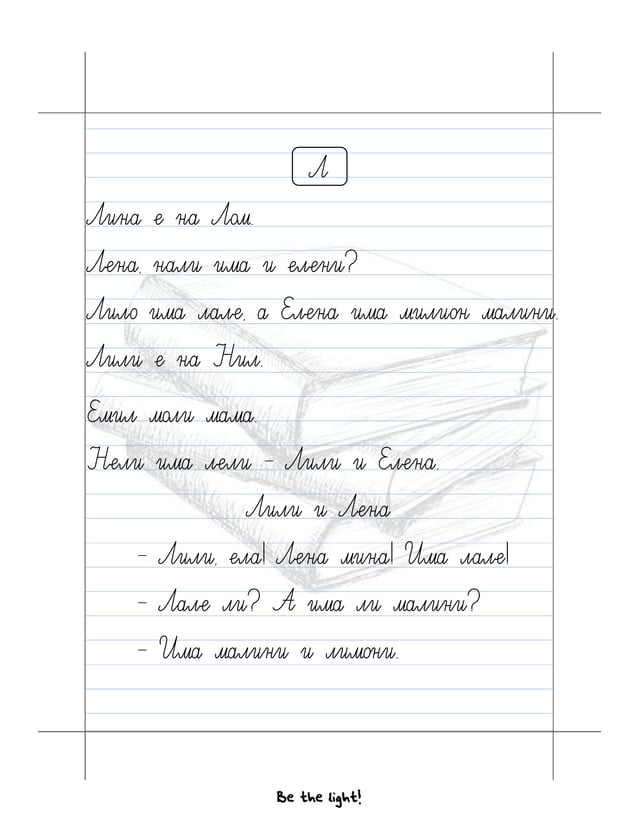 Л
Лина е на Лом.
Лена, нали има и елени?
Лило има лале, а Елена има милион малини.
Лили е на Нил.
Емил моли мама.
Нели има лели - Лили и Елена.
Лили и Лена
- Лили, ела! Лена мина! Има лале!
- Лале ли? А има ли малини?
- Има малини и лимони.
Be the light!